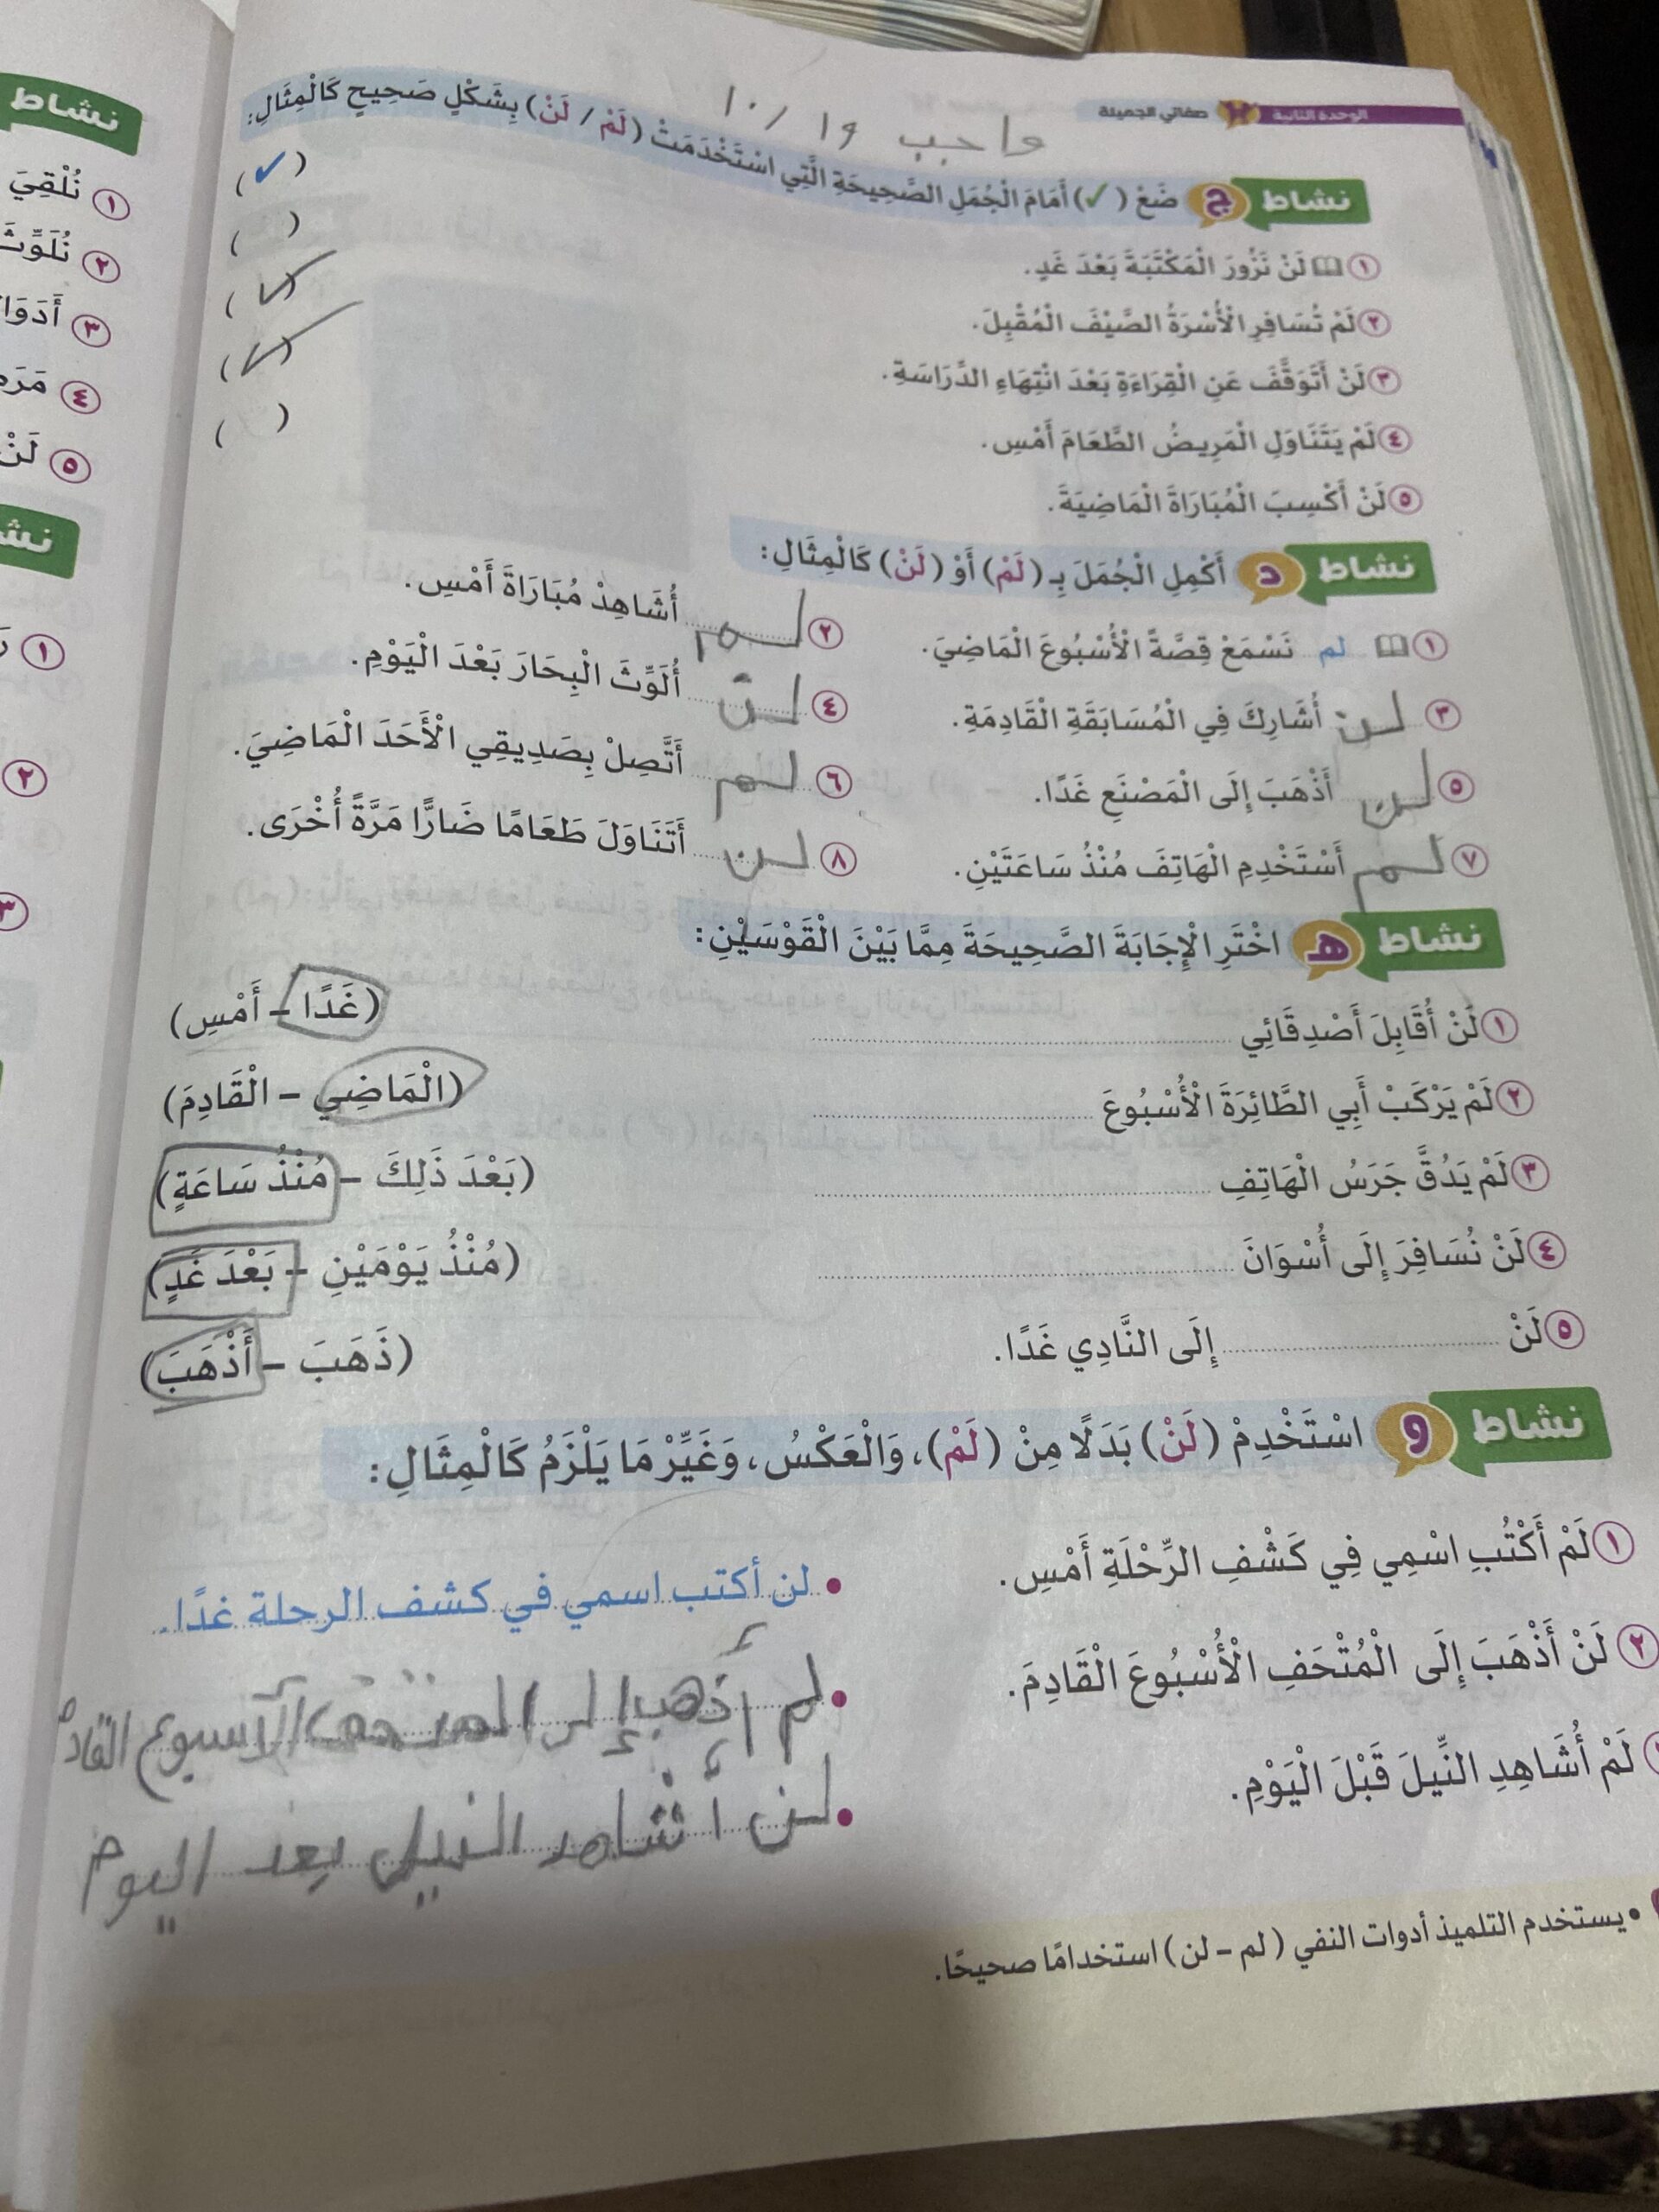 الوحدة الثانية صفاتي الجميلة
واجب ١٩ / ١٠
نشاط ج ضَعْ (✓) أَمَامَ الْجُمَلِ الصَّحِيحَةِ الَّتِي اسْتَخْدَمَتْ (لَمْ / لَنْ) بِشَكْلٍ صَحِيحٍ كَالْمِثَالِ:
١ لَنْ نَزُورَ الْمَكْتَبَةَ بَعْدَ غَدٍ. (✓)
٢ لَمْ تُسَافِرِ الْأُسْرَةُ الصَّيْفَ الْمُقْبِلَ. ( )
٣ لَنْ أَتَوَقَّفَ عَنِ الْقِرَاءَةِ بَعْدَ انْتِهَاءِ الدِّرَاسَةِ. (✓)
٤ لَمْ يَتَنَاوَلِ الْمَرِيضُ الطَّعَامَ أَمْسِ. (✓)
٥ لَنْ أَكْسِبَ الْمُبَارَاةَ الْمَاضِيَةَ. ( )
نشاط د أَكْمِلِ الْجُمَلَ بِـ (لَمْ) أَوْ (لَنْ) كَالْمِثَالِ:
١ لم نَسْمَعْ قِصَّةً الْأُسْبُوعَ الْمَاضِيَ. ٢ لم أُشَاهِدْ مُبَارَاةَ أَمْسِ.
٣ لن أُشَارِكَ فِي الْمُسَابَقَةِ الْقَادِمَةِ. ٤ لن أُلَوِّثَ الْبِحَارَ بَعْدَ الْيَوْمِ.
٥ لن أَذْهَبَ إِلَى الْمَصْنَعِ غَدًا. ٦ لم أَتَّصِلْ بِصَدِيقِي الْأَحَدَ الْمَاضِيَ.
٧ لم أَسْتَخْدِمِ الْهَاتِفَ مُنْذُ سَاعَتَيْنِ. ٨ لن أَتَنَاوَلَ طَعَامًا ضَارًّا مَرَّةً أُخْرَى.
نشاط هـ اخْتَرِ الْإِجَابَةَ الصَّحِيحَةَ مِمَّا بَيْنَ الْقَوْسَيْنِ:
١ لَنْ أُقَابِلَ أَصْدِقَائِي (غَدًا – أَمْسِ)
٢ لَمْ يَرْكَبْ أَبِي الطَّائِرَةَ الْأُسْبُوعَ (الْمَاضِي – الْقَادِمَ)
٣ لَمْ يَدُقَّ جَرَسُ الْهَاتِفِ (بَعْدَ ذَلِكَ – مُنْذُ سَاعَةٍ)
٤ لَنْ نُسَافِرَ إِلَى أُسْوَانَ (مُنْذُ يَوْمَيْنِ – بَعْدَ غَدٍ)
٥ لَنْ إِلَى النَّادِي غَدًا. (ذَهَبَ – أَذْهَبَ)
نشاط و اسْتَخْدِمْ (لَنْ) بَدَلًا مِنْ (لَمْ)، وَالْعَكْسُ، وَغَيِّرْ مَا يَلْزَمُ كَالْمِثَالِ:
١ لَمْ أَكْتُبِ اسْمِي فِي كَشْفِ الرِّحْلَةِ أَمْسِ. • لن أكتب اسمي في كشف الرحلة غدًا.
٢ لَنْ أَذْهَبَ إِلَى الْمُتْحَفِ الْأُسْبُوعَ الْقَادِمَ. • لم أذهب إلى المتحف الأسبوع القادم
لَمْ أُشَاهِدِ النِّيلَ قَبْلَ الْيَوْمِ. • لن أشاهد النيل بعد اليوم
• يستخدم التلميذ أدوات النفي (لم – لن) استخدامًا صحيحًا.
نشاط
١ نُلْقِيَ
٢
٣
٤
٥ لَنْ
١
٢
٣